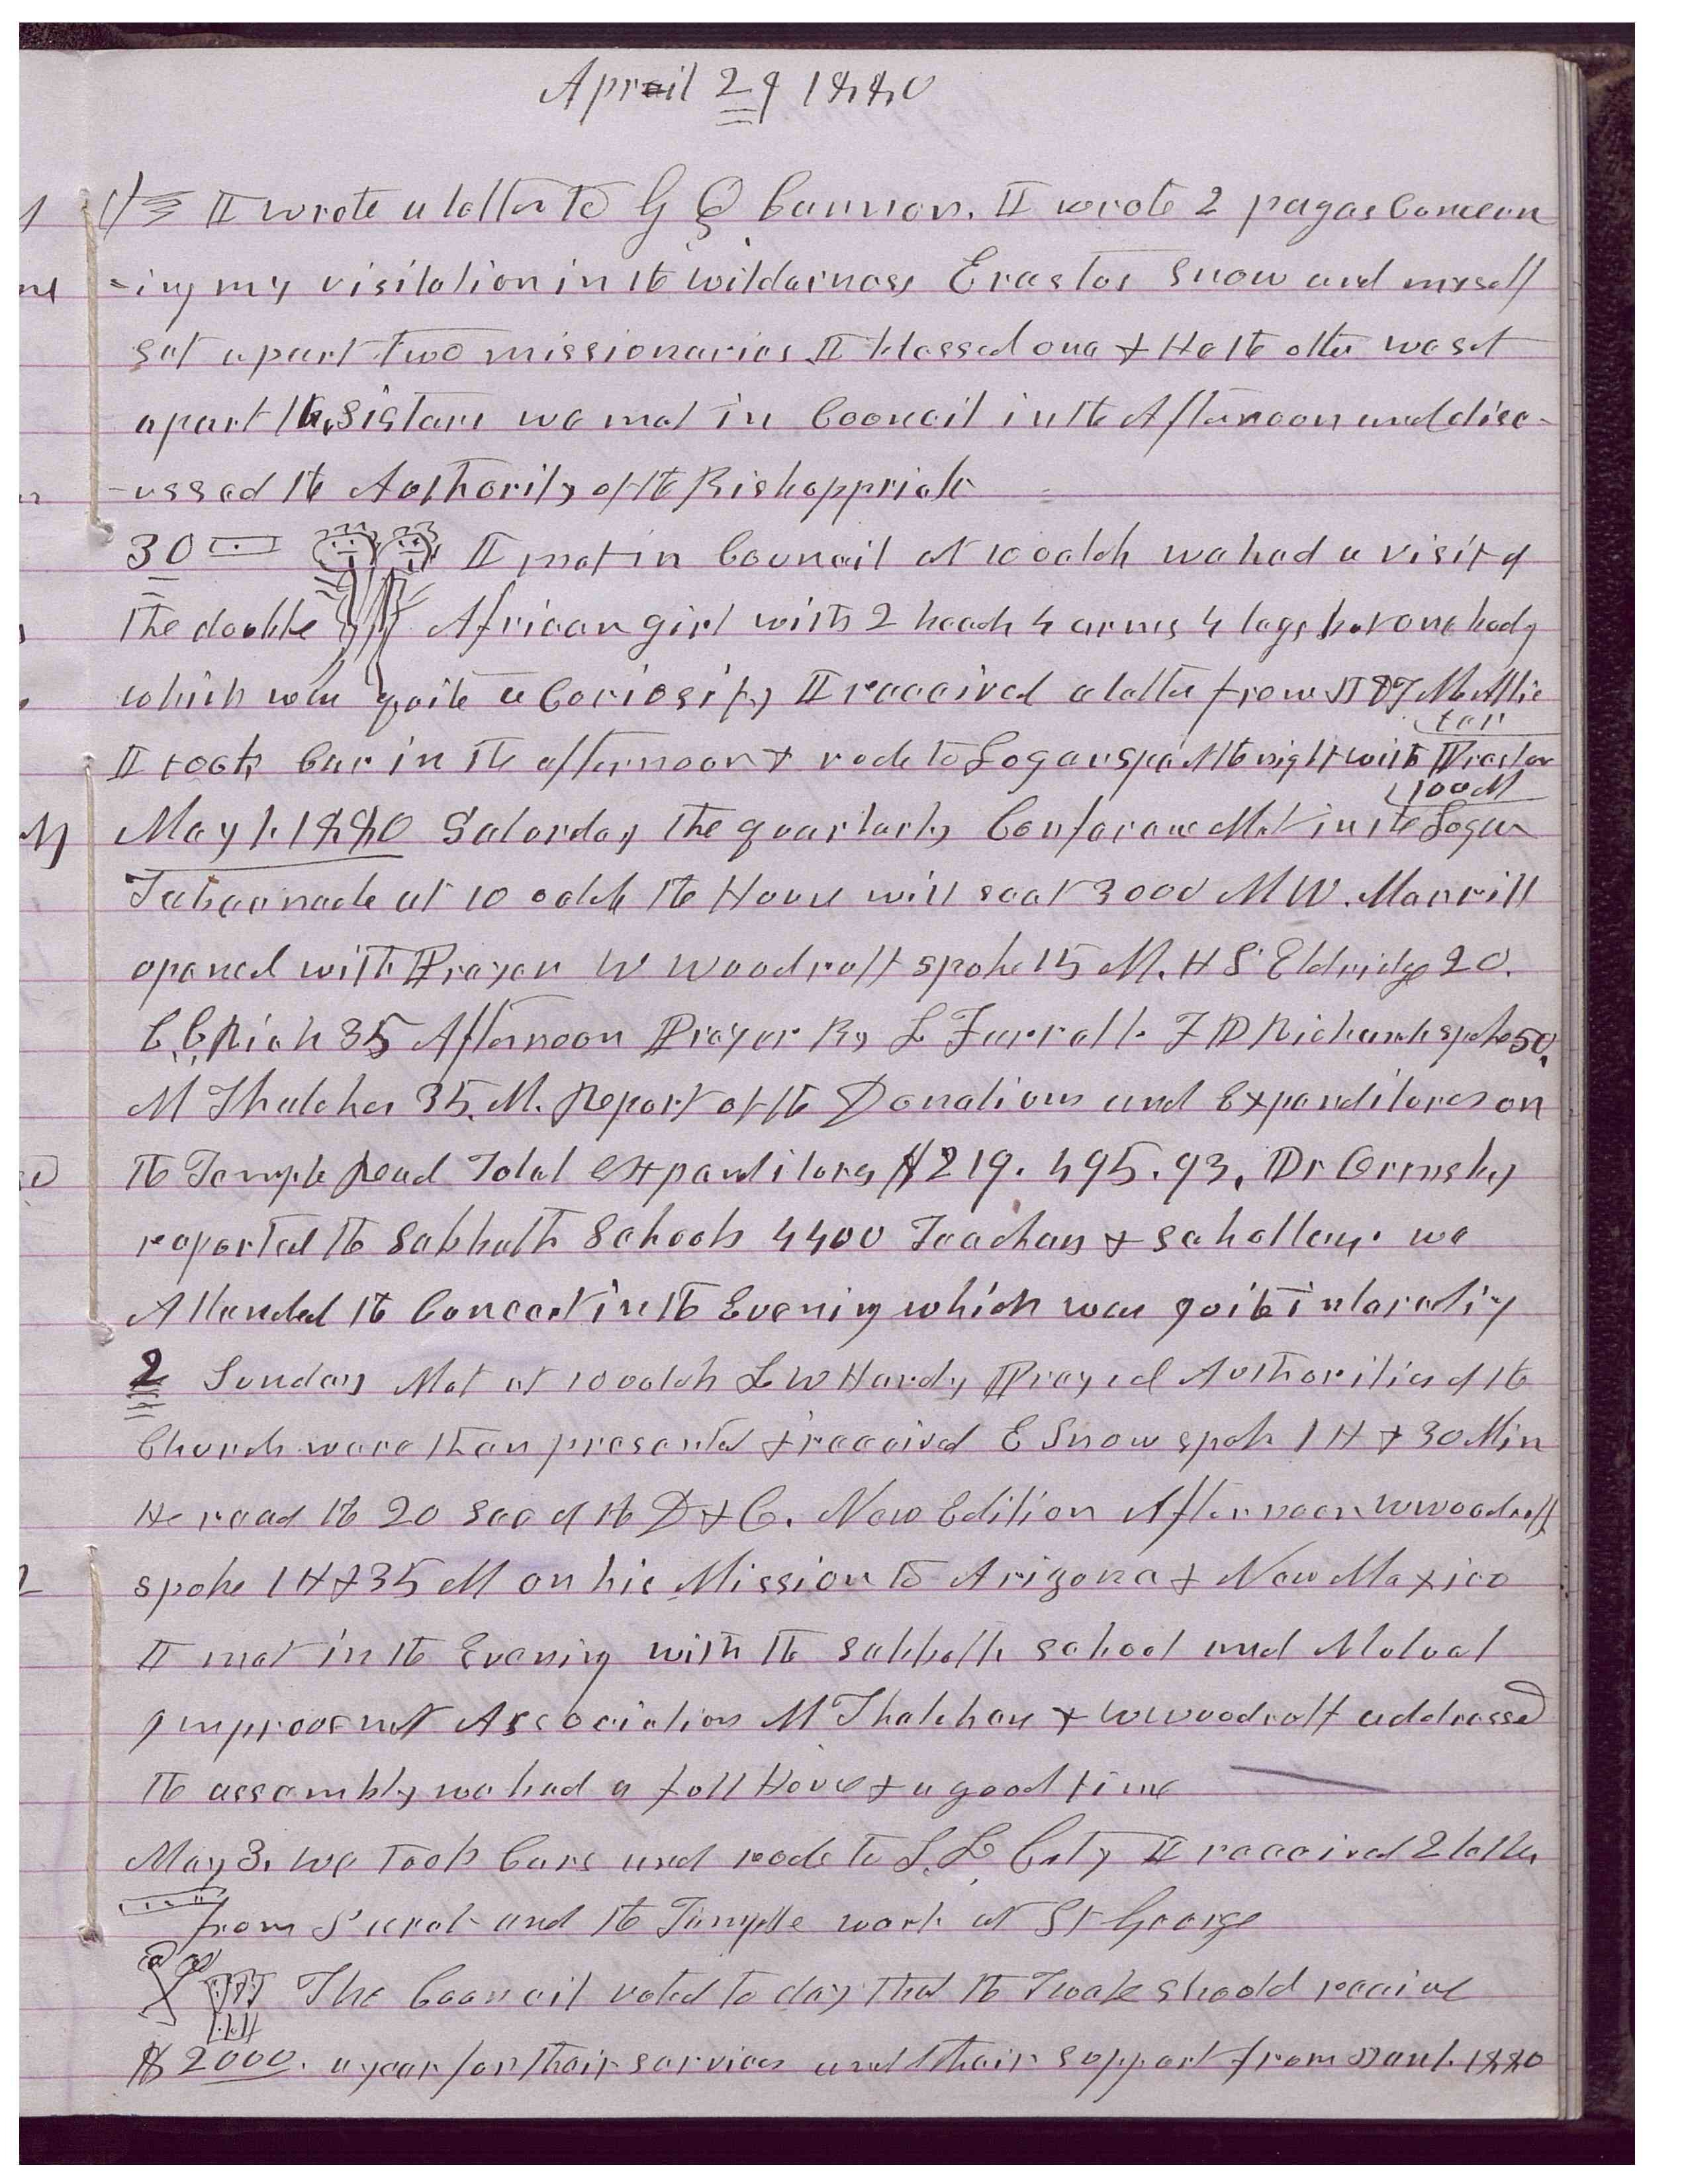 April 29 1880
I wrote a letter to G Q Cannon. I wrote 2 pages Concern
-ing my visitation in the wilderness Erastus Snow and myself
set apart two missionaries I blessed one & He the other we set
apart the Sisters we met in Council in the Afternoon and disc-
-ussed the Authority of the Bishopprick
30 I met in Council at 10 oclok we had a visit of
the double African girl with 2 heads 4 arms 4 legs but one body
which was quite a Curiosity I received a letter from J D T McAllis
ter
I took Car in the afternoon & rode to Logan spent the night with Preston
100 M
May 1. 1880 Saturday the quarterly Conference Met in the Logan
Tabernacle at 10 oclok the House will seat 3000 M W. Merrill
opened with Prayer W Woodruff spoke 15 M. H S Eldridge 20.
C, C, Rich 35 Afternoon Prayer By L Farrall. F D Richards spoke 50,
M Thatcher 35. M. Report of the Donations and Expenditures on
the Temple Read Total expenditures $219.495.93, Dr Ormsby
reported the Sabbath Schools 4400 Teachers & schollars. we
Attended the Concert in the Evening which was quite interesting
2 Sunday Met at 10 oclok L W Hardy Prayed Authorities of the
Church ware then presented & received E Snow spoke 1 H & 30 Min
He read the 20 sec of the D & C. New Edition Afternoon W Woodruff
spoke 1 H & 35 M on his Mission to Arizona & New Mexico
I met in the Evening with the Sabbath school and Mutual
Improvement Association M Thatcher & W Woodruff addressed
the assembly we had a full House & a good time
May 3. we took Cars and rode to S. L. City I received 2 letters
from Sarah and the Temple work at St George
The Council voted to day that the Twelve should receive
$2000. a year for their services and their support from Jan 1. 1880